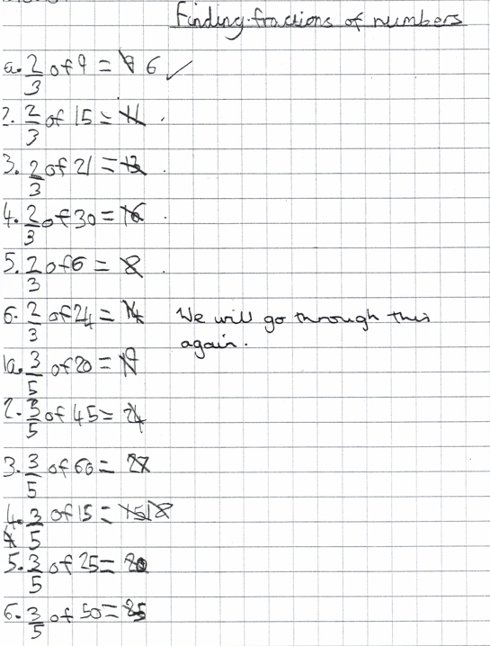 Finding fractions of numbers
a. 2/3 of 9 = 6 ✓
2. 2/3 of 15 = 11
3. 2/3 of 21 = 13
4. 2/3 of 30 = 16
5. 2/3 of 6 = 8
6. 2/3 of 24 = 14
We will go through this
again.
1a. 3/5 of 20 =
2. 3/5 of 45 = 24
3. 3/5 of 60 = 27
4. 3/5 of 15 = 15 18
5. 3/5 of 25 = 20
6. 3/5 of 50 = 25